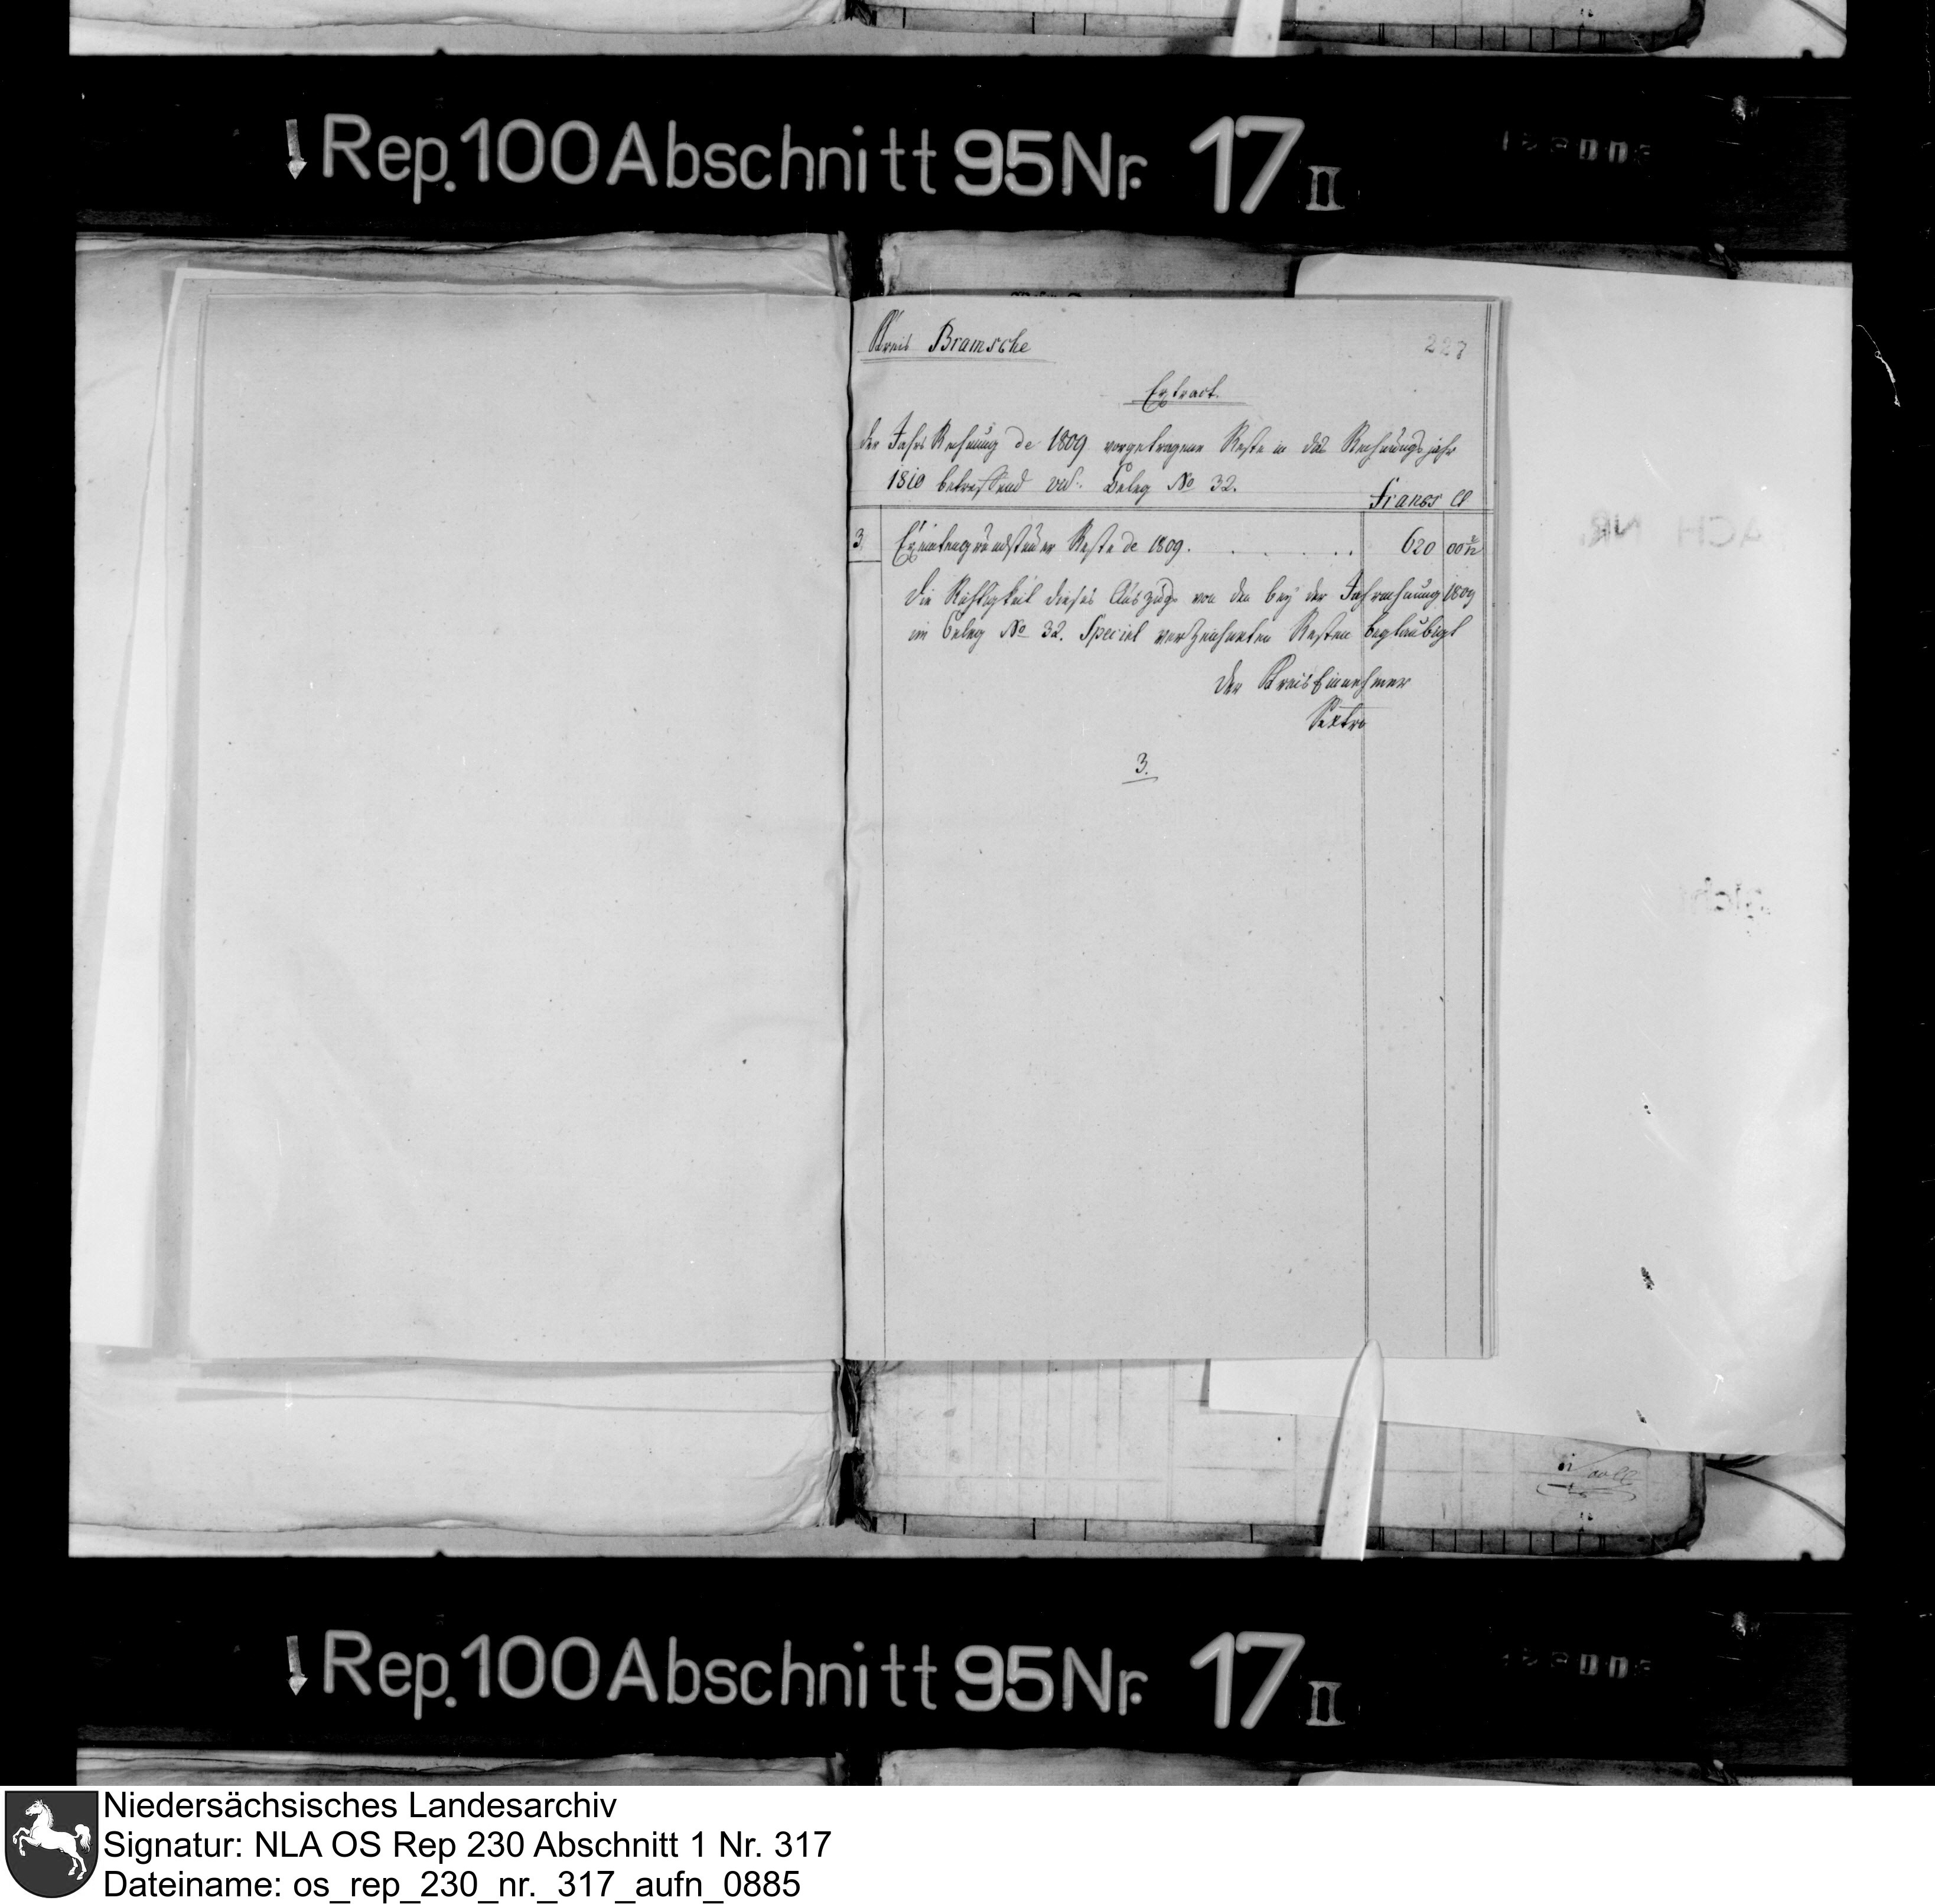 Rep. 100 Abschnitt 95 Nr. 17 II
Kreis Bramsche
227
Extract
der Jahrs Rechnung de 1809 vorgetragene Reste in das Rechnungsjahr
1810 betreffend vid. Beleg No 32.
Francs C
3. Exemtengrundsteuer Reste de 1809. . . . . . . 620 00
Die Richtigkeit dieses Auszugs von den bey der Jahrrechnung 1809
im Beleg No 32. Speciel verzeichneten Resten beglaubigt
Der Kreis Einnehmer
Sextro
3.
Rep. 100 Abschnitt 95 Nr. 17 II
Niedersächsisches Landesarchiv
Signatur: NLA OS Rep 230 Abschnitt 1 Nr. 317
Dateiname: os_rep_230_nr._317_aufn_0885